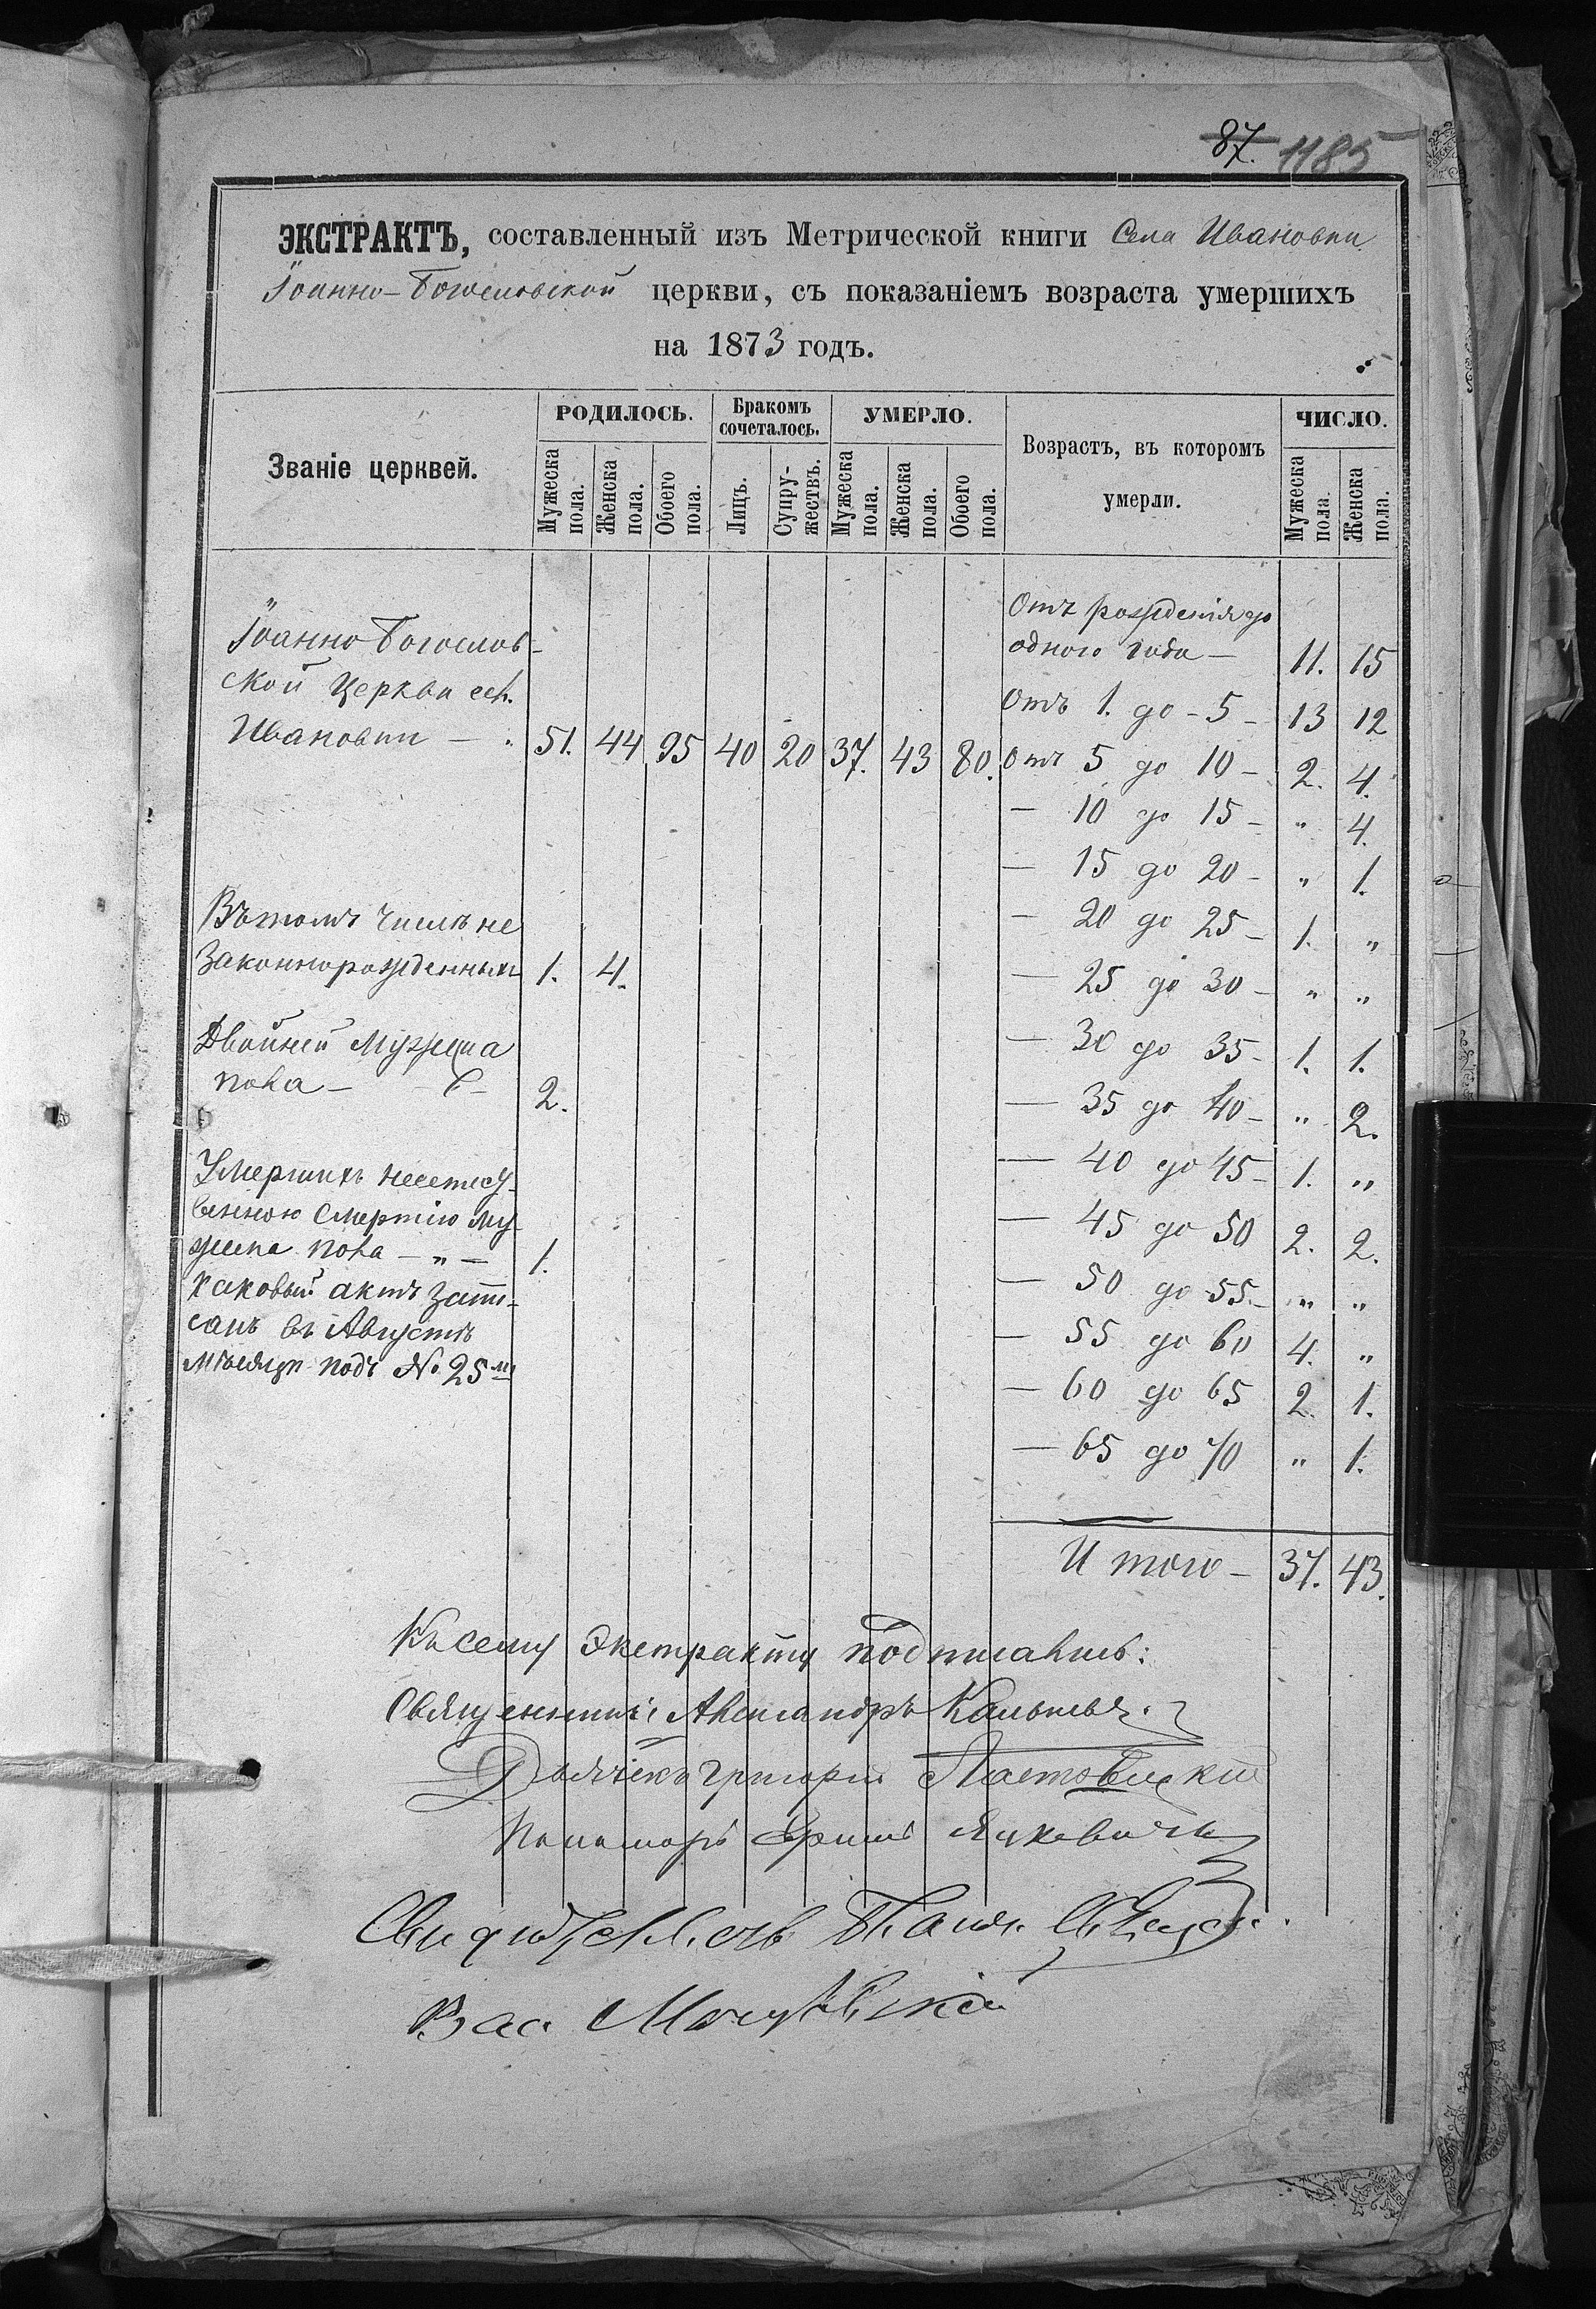 87. 1185
ЭКСТРАКТЪ, составленный изъ Метрической книги Села Ивановки
Іоанно-Богословской церкви, съ показаніемъ возраста умершихъ
на 1873 годъ.
Званіе церквей.
РОДИЛОСЬ.
Мужеска пола.
Женска пола.
Обоего пола.
Бракомъ сочеталось.
Лицъ.
Супружествъ.
УМЕРЛО.
Мужеска пола.
Женска пола.
Обоего пола.
Возрастъ, въ которомъ
умерли.
ЧИСЛО.
Мужеска пола.
Женска пола.
Іоанно Богослов-
ской церкви сел.
Ивановки — 51. 44 95 40 20 37. 43 80.
Въ томъ числѣ не
законнорожденныхъ 1. 4.
Двойней Мужеска
пола — 2.
Умершихъ неестест-
венною смертію му-
жеска пола — „ — 1.
каковый актъ запи-
санъ въ Августѣ
мѣсяцѣ подъ № 25 мъ
Отъ рожденія до
одного года — 11. 15
Отъ 1. до - 5 - 13 12
Отъ 5 до 10 - 2. 4.
— 10 до 15 - „ 4.
— 15 до 20 - „ 1.
— 20 до 25 - 1. „
— 25 до 30 - „ „
— 30 до 35 - 1. 1.
— 35 до 40 - „ 2.
— 40 до 45 - 1. „
— 45 до 50 2. 2.
— 50 до 55 - „ „
— 55 до 60 4. „
— 60 до 65 2. 1.
— 65 до 70 „ 1.
Итого - 37. 43.
Къ сему Экстракту подписались:
Священникъ Александръ
Дьячекъ Григорій
Пономарь Яцкевичъ